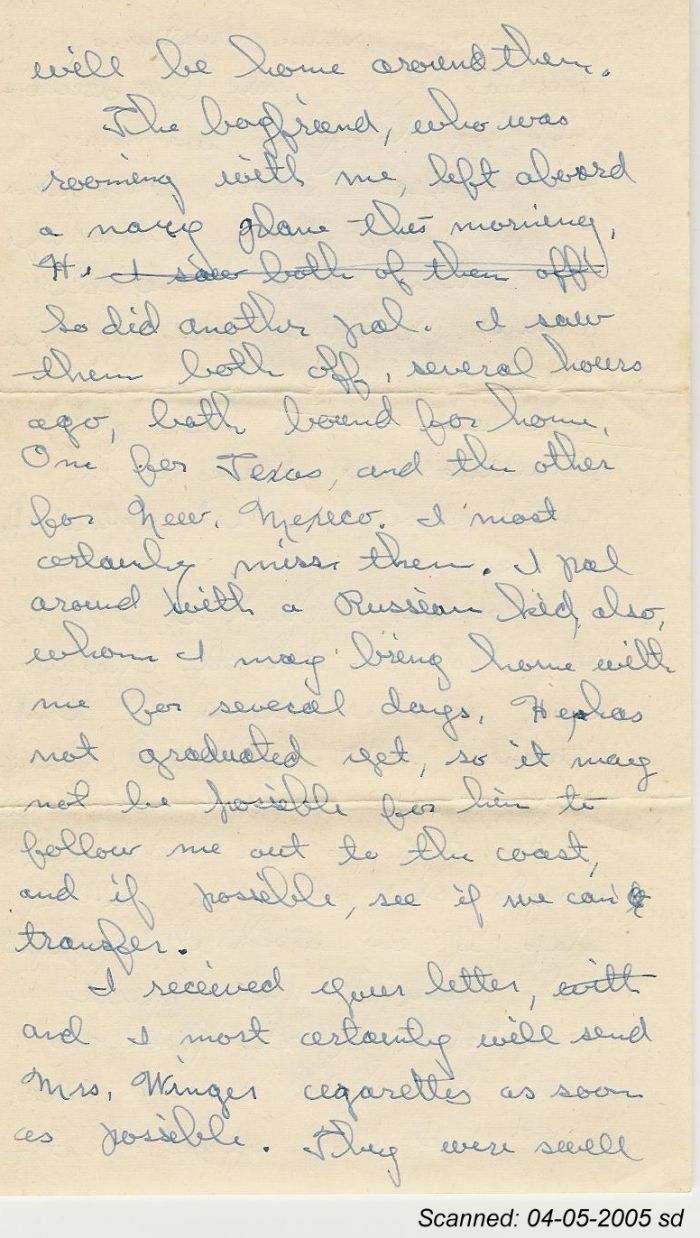 will be home around then.
The boyfriend, who was
rooming with me, left aboord
a navy plane this morning,
H. I saw both of them off
So did another pal. I saw
them both off, several hours
ago, both bound for home,
One for Texas, and the other
for New. Mexico. I most
certainly miss them. I pal
around with a Russian kid, also,
whom I may bring home with
me for several days, He has
not graduated yet, so it may
not be possible for him to
follow me out to the coast,
and if possible, see if we can
transfer.
I received your letter, with
and I most certainly will send
Mrs. Winger cigarettes as soon
as possible. They were swell
Scanned: 04-05-2005 sd